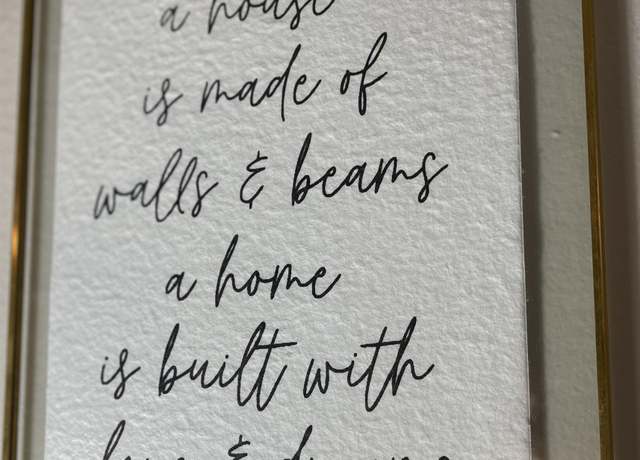 a house
is made of
walls & beams
a home
is built with
love & dreams